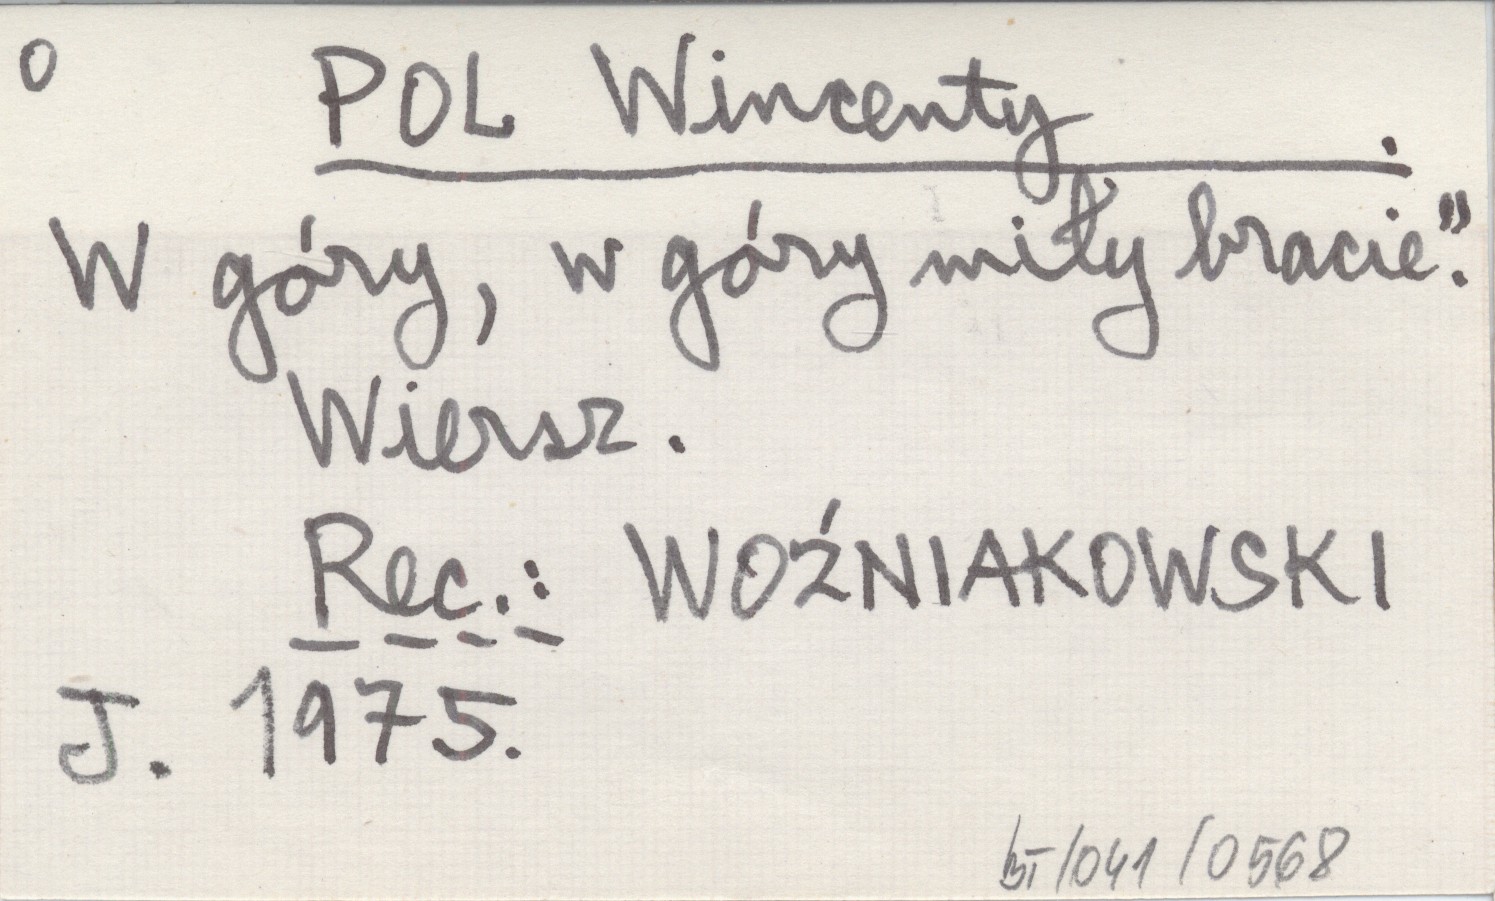 o POL Wincenty.
W góry, w góry miły bracie".
Wiersz.
Rec.: WOŹNIAKOWSKI
J. 1975.
/041/0568